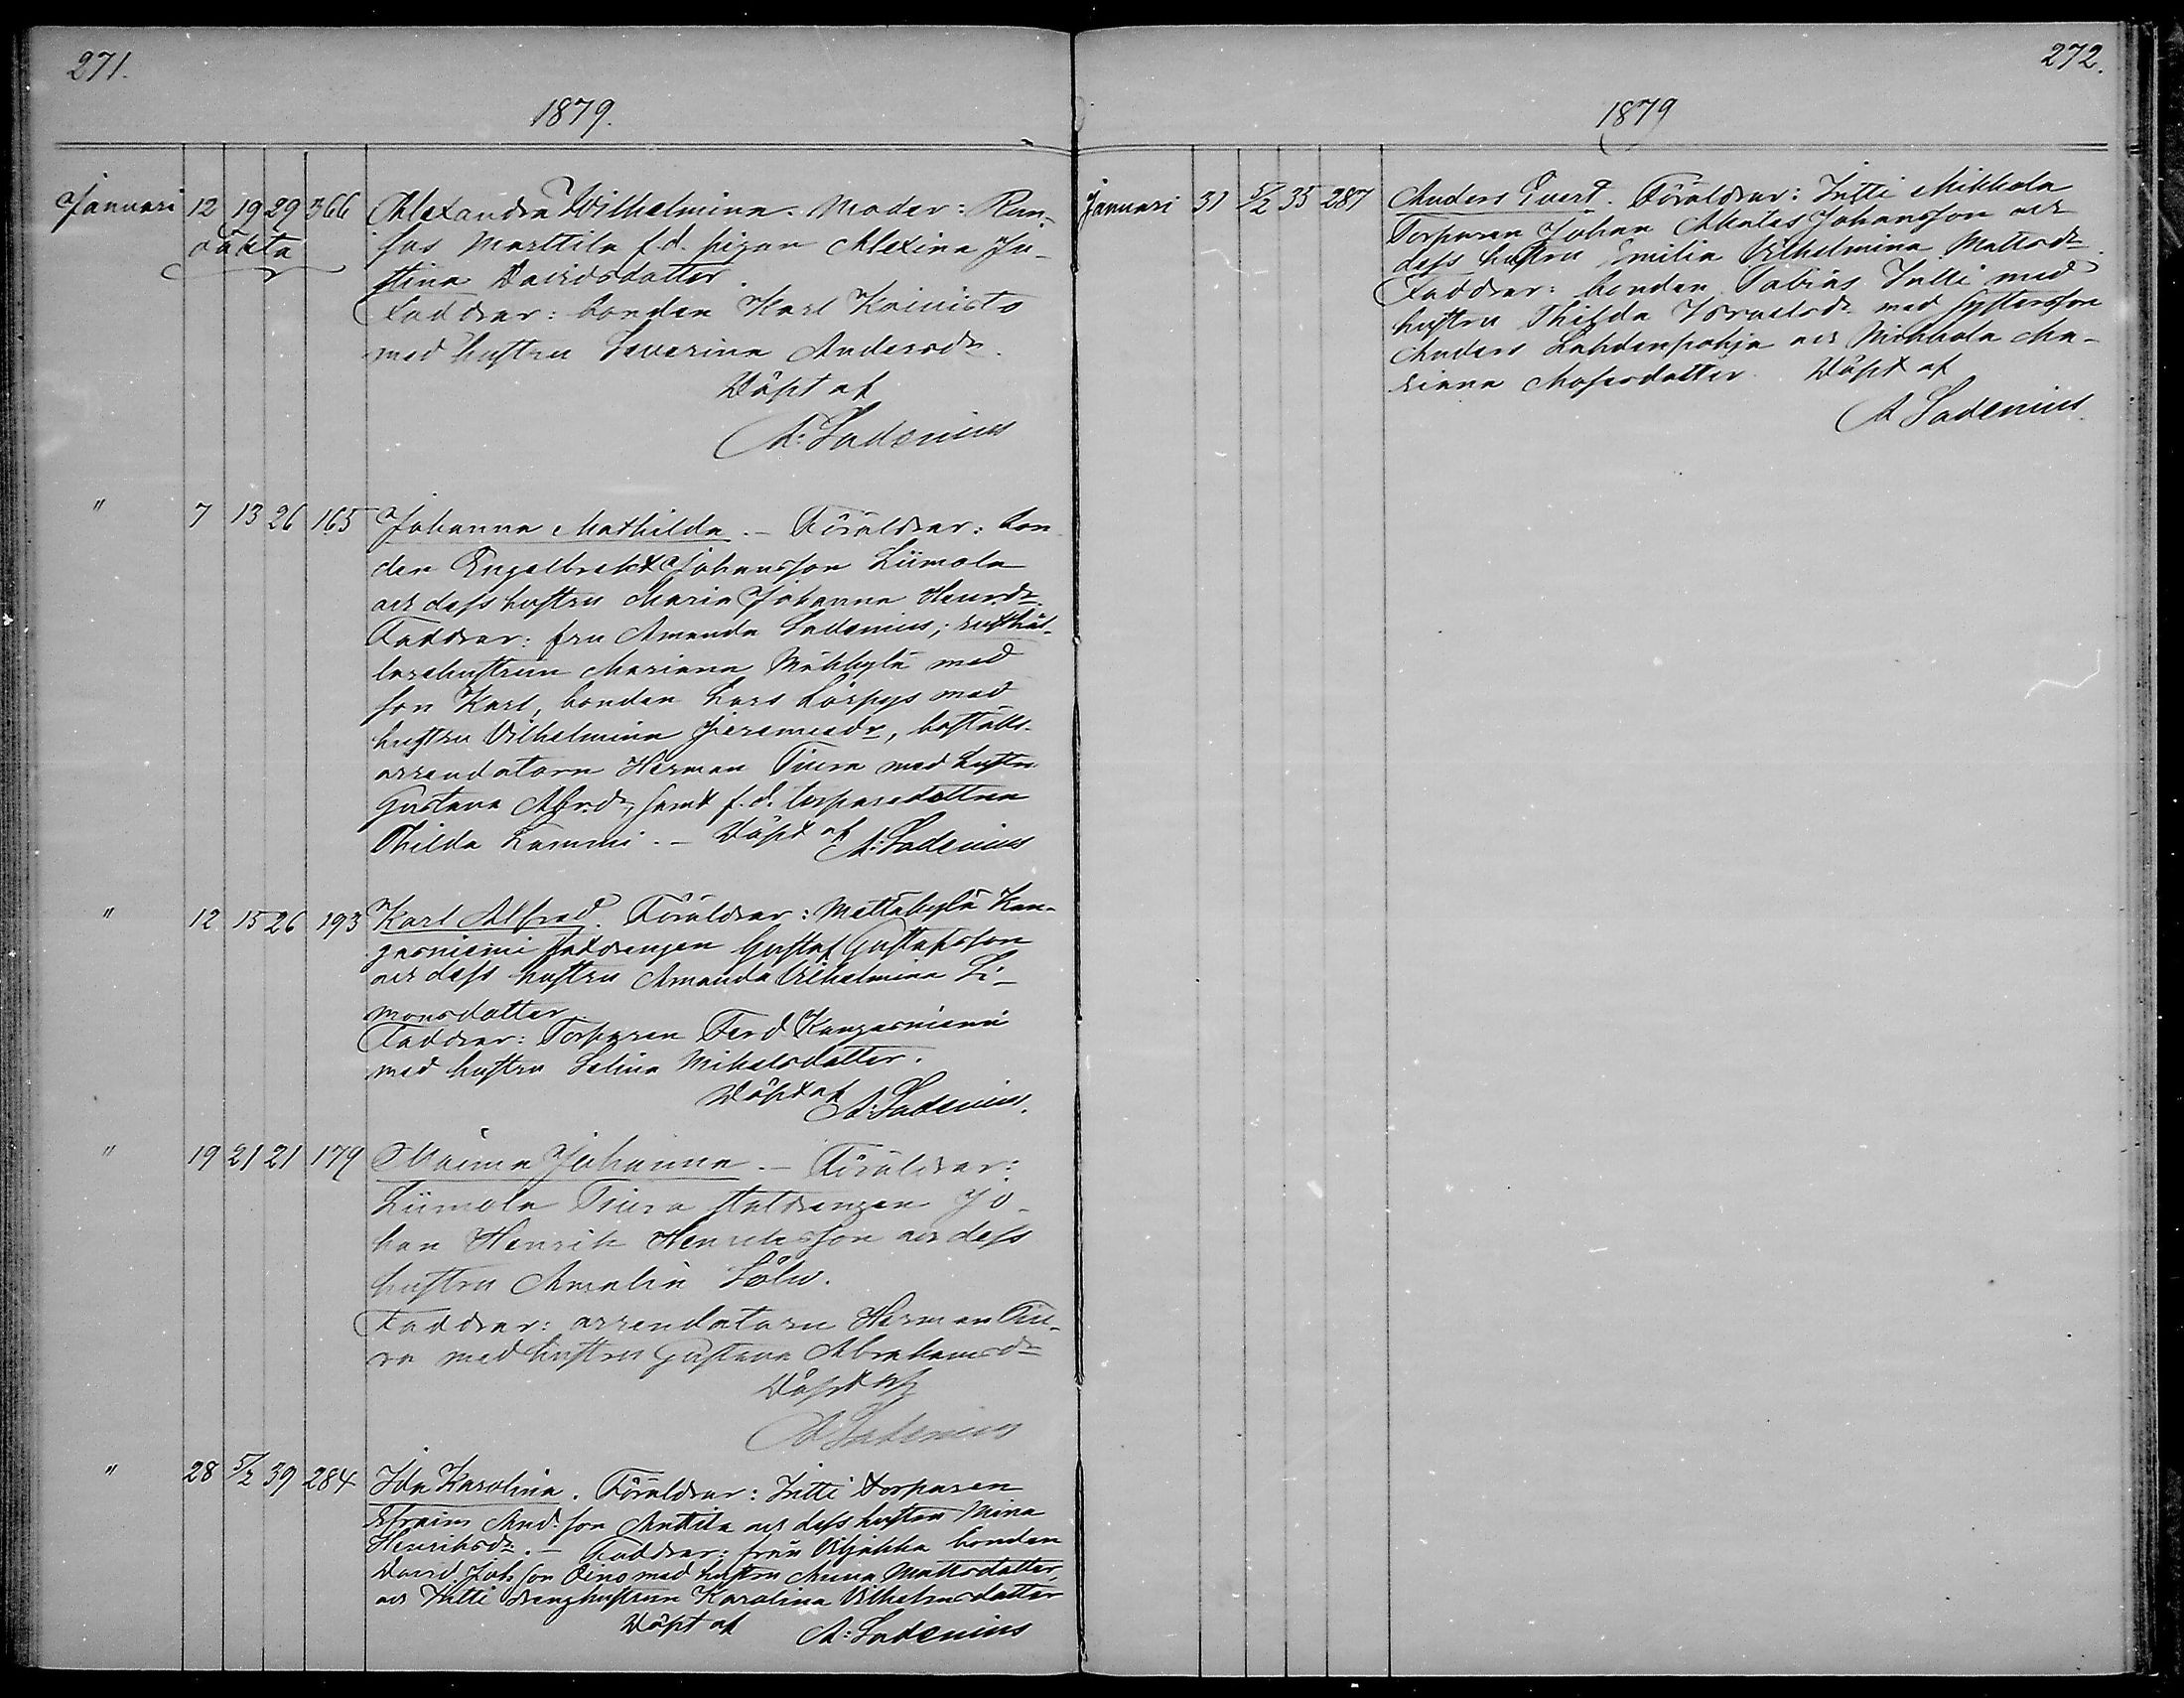 271.
1879.
Januari 12 19 29 366 Alexandra Wilhelmina. Moder: Ran-
oäkta
sas Marttila f.d. pigan Alexina Ju-
stina Davidsdotter.
Faddrar: bonden Karl Koivisto
med hustru Severina Andersdr.
Döpt af
A: Ladenius
" 7 13 26 165 Johanna Mathilda. - Föräldrar: bon-
den Engelbrekt Johansson Liimola
och dess hustru Maria Johanna Henrdr.
Faddrar: fru Amanda Ladenius; rusthål-
larehustrun Mariana Mäkkylä med
son Karl, bonden Lars Lörpys med
hustru Vilhelmina Jeremiedr, boställs-
arrendatorn Herman Tiura med hustru
Gustava Abr.dr, samt f.d. torparedottren
Thilda Lammi. - Döpt af A: Ladenius
" 12 15 26 193 Karl Alfred. Föräldrar: Mattäkylä Kan-
gasniemi statdrengen Gustaf Gustafsson
och dess hustru Amanda Vilhelmina Si-
monsdotter.
Faddrar: Torparen Ferd Kangasniemi
med hustru Selina Mikelsdotter.
Döpt af A: Ladenius.
" 19 21 21 179 Maima Johanna. - Föräldrar:
Liimola Tiura statdrengen Jo-
han Henrik Henriksson och dess
hustru Amalia Lölu.
Faddrar: arrendatorn Herman Tiu-
ra med hustru Gustava Abrahamsdr
Döpt af
A Ladenius
" 28 5/2 39 284 Ida Karolina. Föräldrar: Jutti torparen
Efraim And.son Anttila och dess hustru Mina
Henriksdr. - Faddrar: från Viljakka bonden
David Joh.son Eino med hustru Anna Mattsdotter,
och Jutti drenghustrun Karolina Vilhelmsdotter
Döpt af A: Ladenius
272.
1879
Januari 31 5/2 35 287 Anders Evert. Föräldrar: Jutti Mikkola
Torparen Johan Johansson och
dess hustru Emilia Vilhelmina Mattsdr.
Faddrar: bonden Tobias Jutti med
hustru Thilda Israelsdr med systerson
Anders Lahdenpohja och Mikkola Ma-
riana Mosesdotter. Döpt af
A Ladenius.